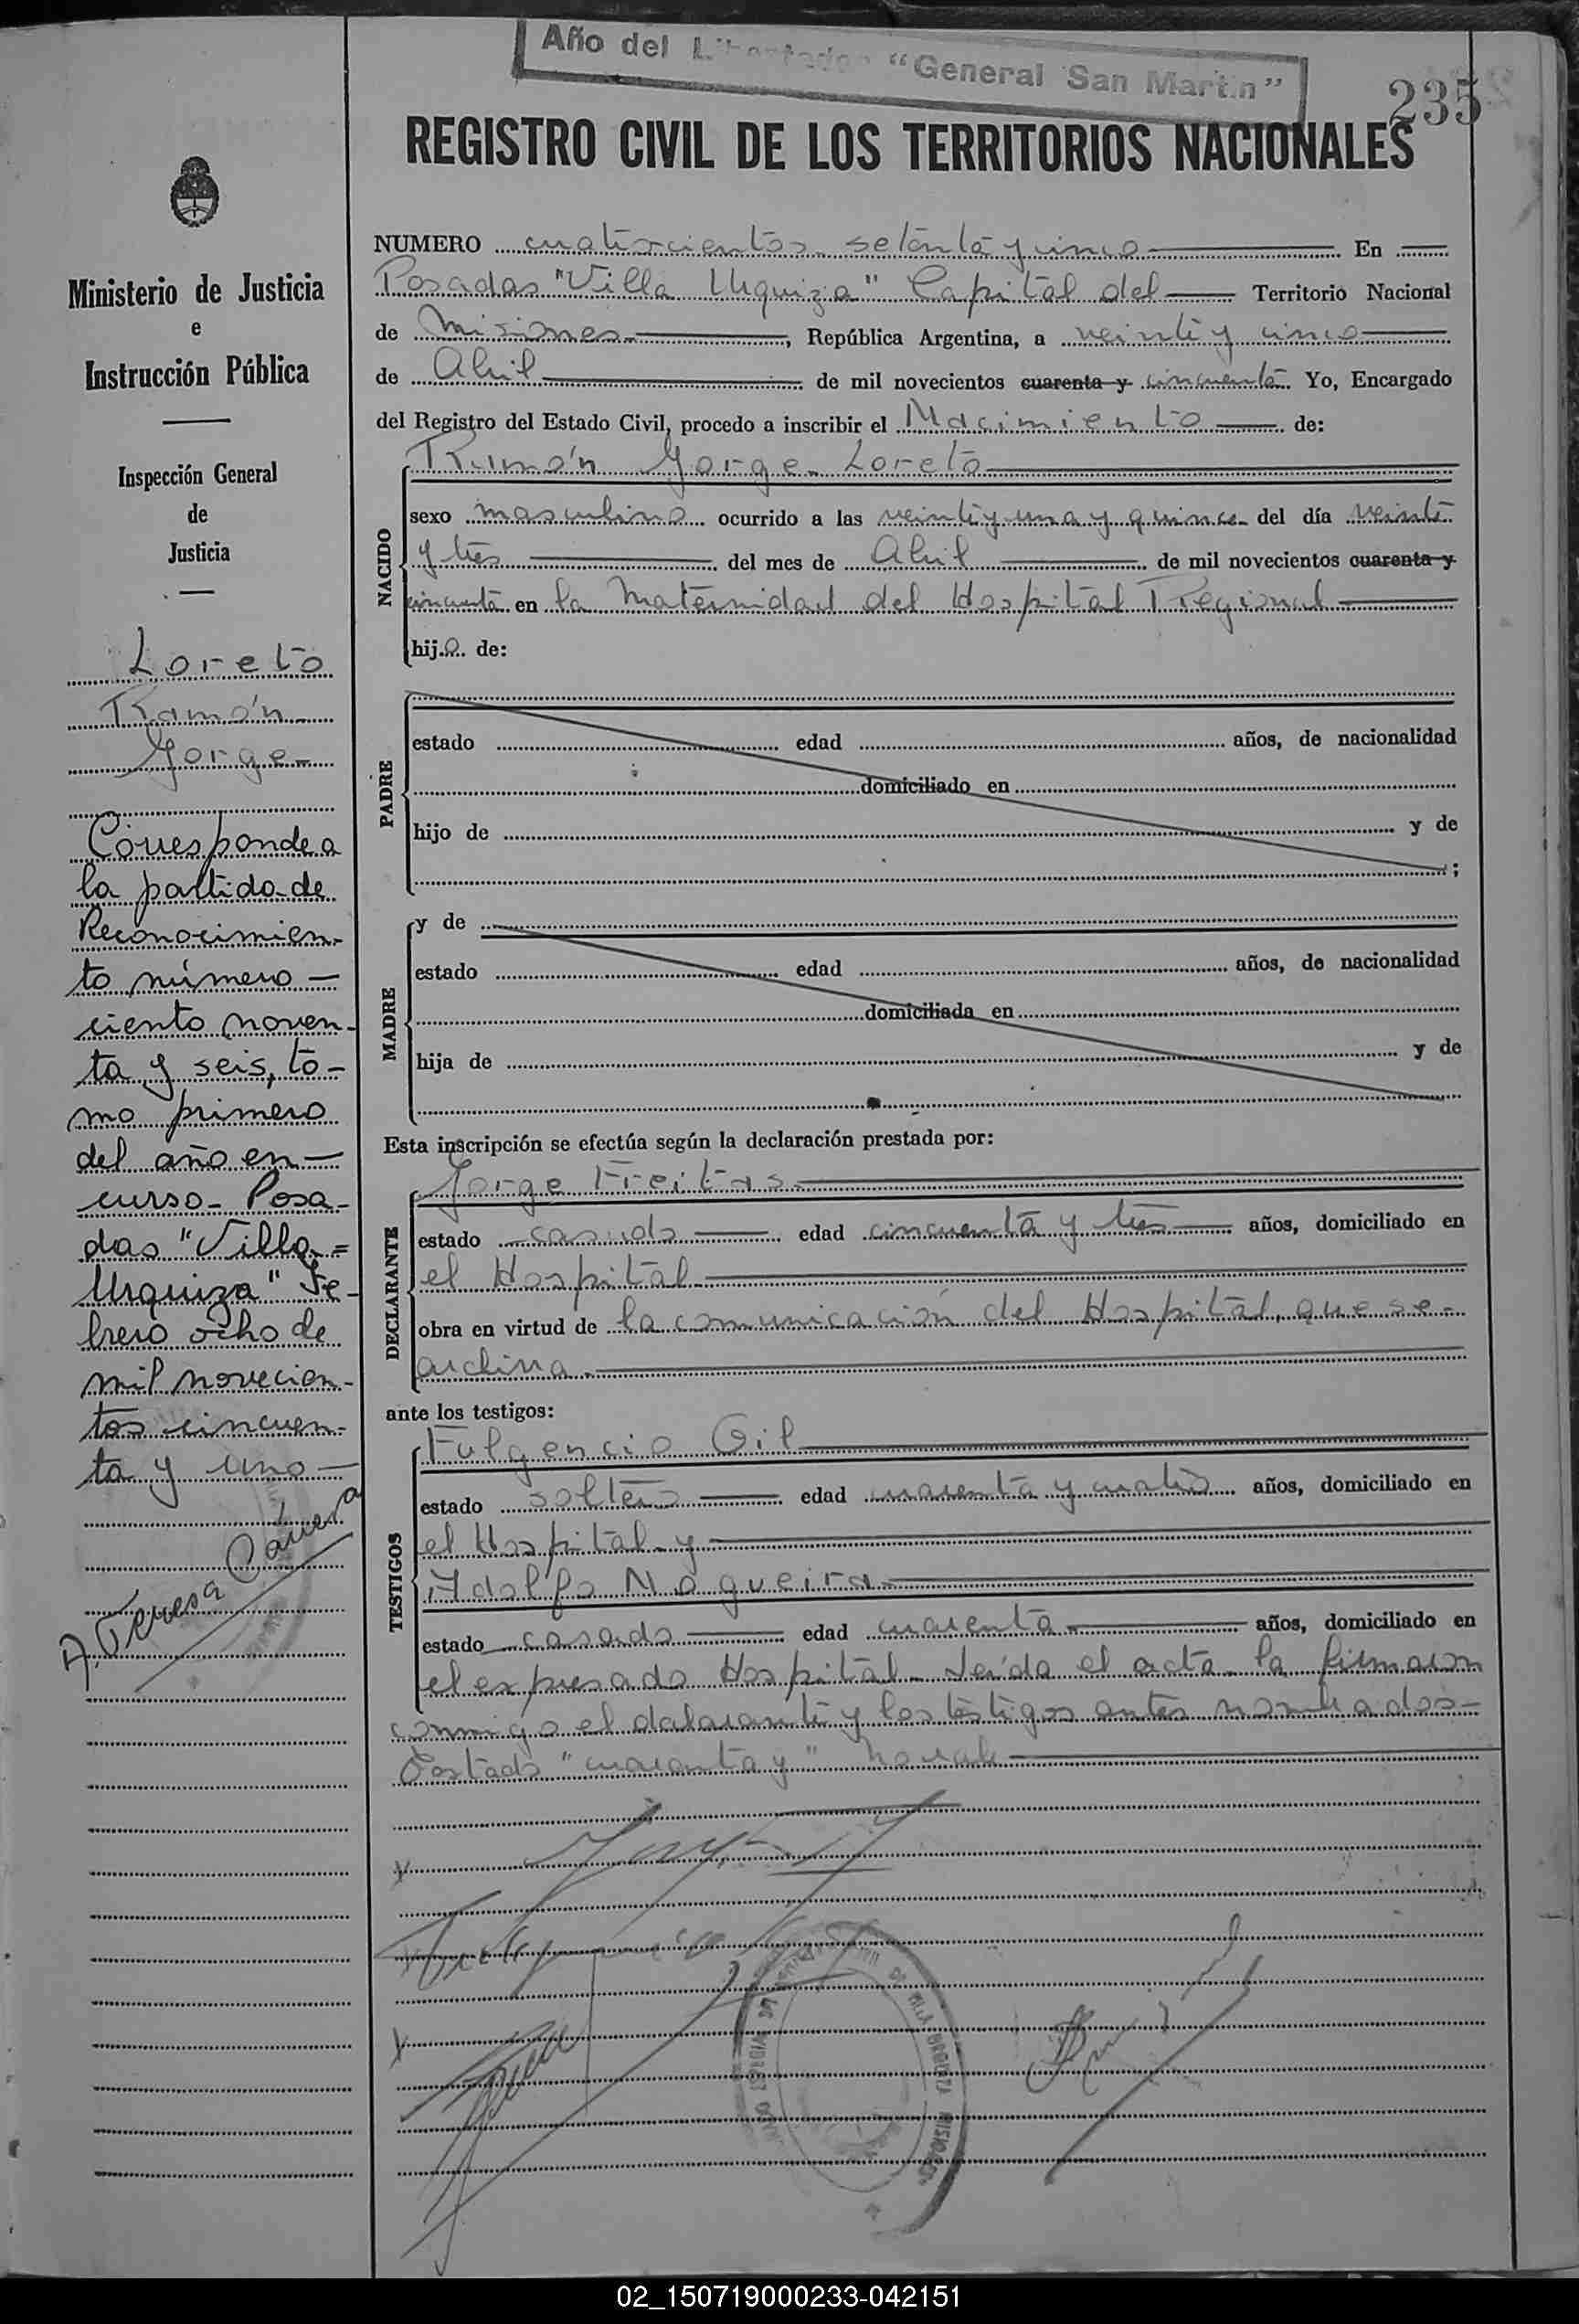 Año del Libertador "General San Martin"
235
REGISTRO CIVIL DE LOS TERRITORIOS NACIONALES
Ministerio de Justicia
e
Instrucción Pública
Inspección General
de
Justicia
Loreto
Ramón
Jorge
Corresponde a
la partida de
Reconocimien-
to número —
ciento noven-
ta y seis, to-
mo primero
del año en —
curso - Posa-
das "Villa =
Urquiza" Fe-
brero ocho de
mil novecien-
tos cincuen-
ta y uno —
A. Teresa
NUMERO cuatrocientos setenta y cinco En
Posadas "Villa Urquiza" Capital del Territorio Nacional
de Misiones, República Argentina, a veinte y cinco
de Abril de mil novecientos cuarenta y cincuenta. Yo, Encargado
del Registro del Estado Civil, procedo a inscribir el Nacimiento de:
NACIDO
Ramón Jorge Loreto
sexo masculino ocurrido a las veinte y una y quince del día veinte
y tres del mes de Abril de mil novecientos cuarenta y
cincuenta en la Maternidad del Hospital Regional
hijo de:
PADRE
estado edad años, de nacionalidad
domiciliado en
hijo de y de
;
MADRE
y de
estado edad años, de nacionalidad
domiciliada en
hija de y de
Esta inscripción se efectúa según la declaración prestada por:
DECLARANTE
Jorge Freitas
estado casado edad cincuenta y tres años, domiciliado en
el Hospital
obra en virtud de la comunicación del Hospital, que se
archiva.
ante los testigos:
TESTIGOS
Fulgencio Gil
estado soltero edad cuarenta y cuatro años, domiciliado en
el Hospital y
Adolfo Nogueira
estado casado edad cuarenta años, domiciliado en
el expresado Hospital. Leída el acta la firmaron
conmigo el declarante y los testigos antes nombrados -
Testado "cuarenta y"
02_150719000233-042151